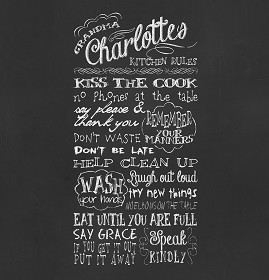 GRANDMA
Charlottes
KITCHEN RULES
KISS THE COOK
no PHONES at the table
say please &
thank you
REMEMBER
YOUR
MANNERS
DON'T WASTE
DON'T BE LATE
HELP CLEAN UP
WASH
your hands
Laugh out loud
try new things
NO ELBOWS ON THE TABLE
EAT UNTIL YOU ARE FULL
SAY GRACE
IF YOU GET IT OUT
PUT IT AWAY
Speak
KINDLY